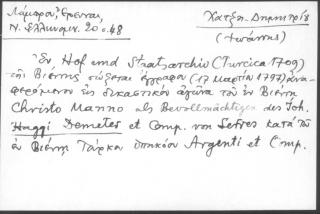 Λάμπρου, Ἔρευναι,
Ν. Ἑλληνομν. 20 σ. 48
Χατζῆ-Δημητρίδ
(Ἰωάννης)
Ἐν Hof und Staatsarchiv (Turcica 1709)
τῆς Βιέννης σώζεται ἔγγραφον (17 Μαρτίου 1797) ἀνα-
φερόμενον εἰς δικαστικὸν ἀγῶνα τοῦ ἐν Βιέννῃ
Christo Manno als Bevollmächtigen des Joh.
Haggi Demeter et Comp. von Serres κατὰ τοῦ
ἐν Βιέννῃ Τούρκου ὑπηκόου Argenti et Comp.